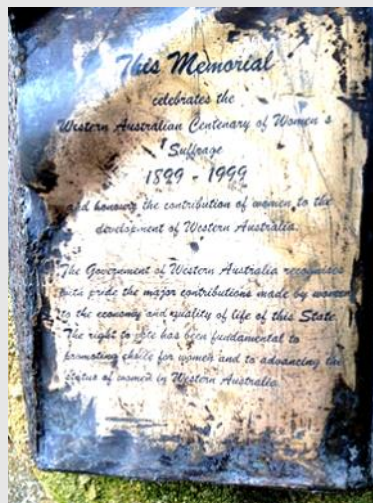 This Memorial
celebrates the
Western Australian Centenary of Women's
Suffrage
1899 - 1999
and honours the contribution of women to the
development of Western Australia.
The Government of Western Australia recognises
with pride the major contributions made by women
to the economy and quality of life of this State.
The right to vote has been fundamental to
promoting choice for women and to advancing the
status of women in Western Australia.